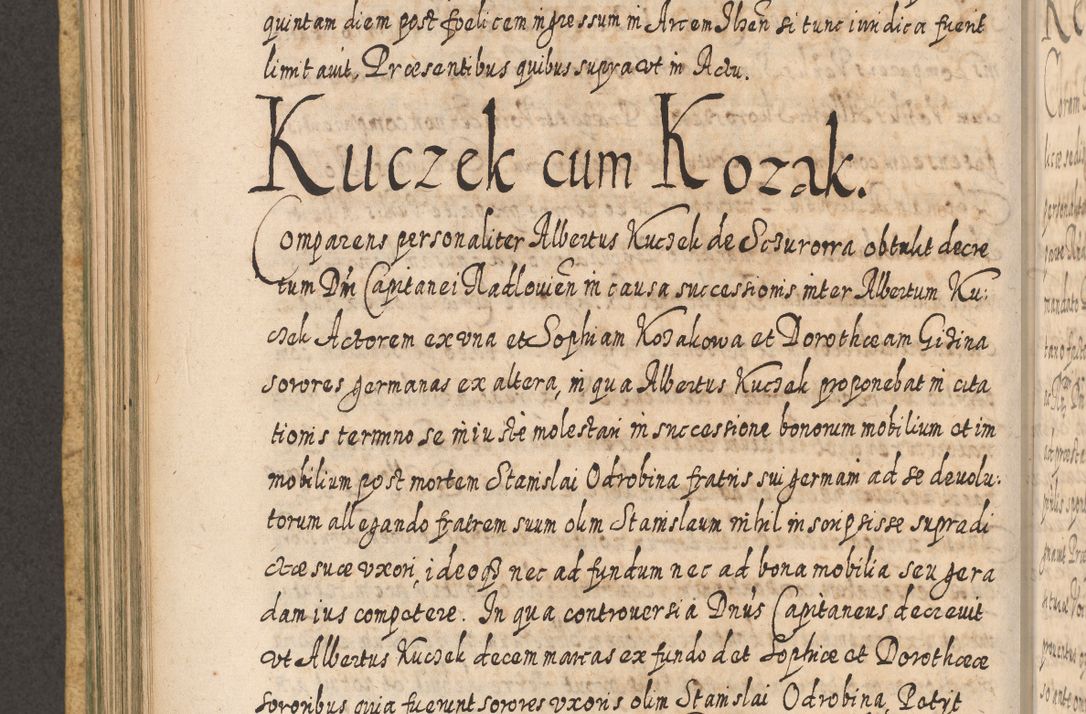 quintam diem post foelicem ingressum in Arcem Ilzen si tunc iuridica fuerit
limitavit, Præsentibus quibus supra ut in Actu.
Kuczek cum Kozak.
Comparens personaliter Albertus Kuczek de Sczurowa obtulit decre
tum Dni Capitanei Radlovien in causa successionis inter Albertum Ku:
czek Actorem ex una et Sophiam Kozakowa et Dorotheam Gizina
sorores germanas ex altera, in qua Albertus Kuczek proponebat in cita
tionis termino se iniuste molestari in successione bonorum mobilium et im
mobilium post mortem Stanislai Odrobina fratris sui germani ad se devolu:
torum allegando fratrem suum olim Stanislaum nihil inscripsisse supradi
ctæ suæ uxori, ideoq3 nec ad fundum nec ad bona mobilia seu gera
dam ius competere. In qua controversia Dnus Capitaneus decrevit
ut Albertus Kuczek decem marcas ex fundo det Sophiæ et Dorotheæ
sororibus quia fuerunt sorores uxoris olim Stanislai Odrobina, Petyt